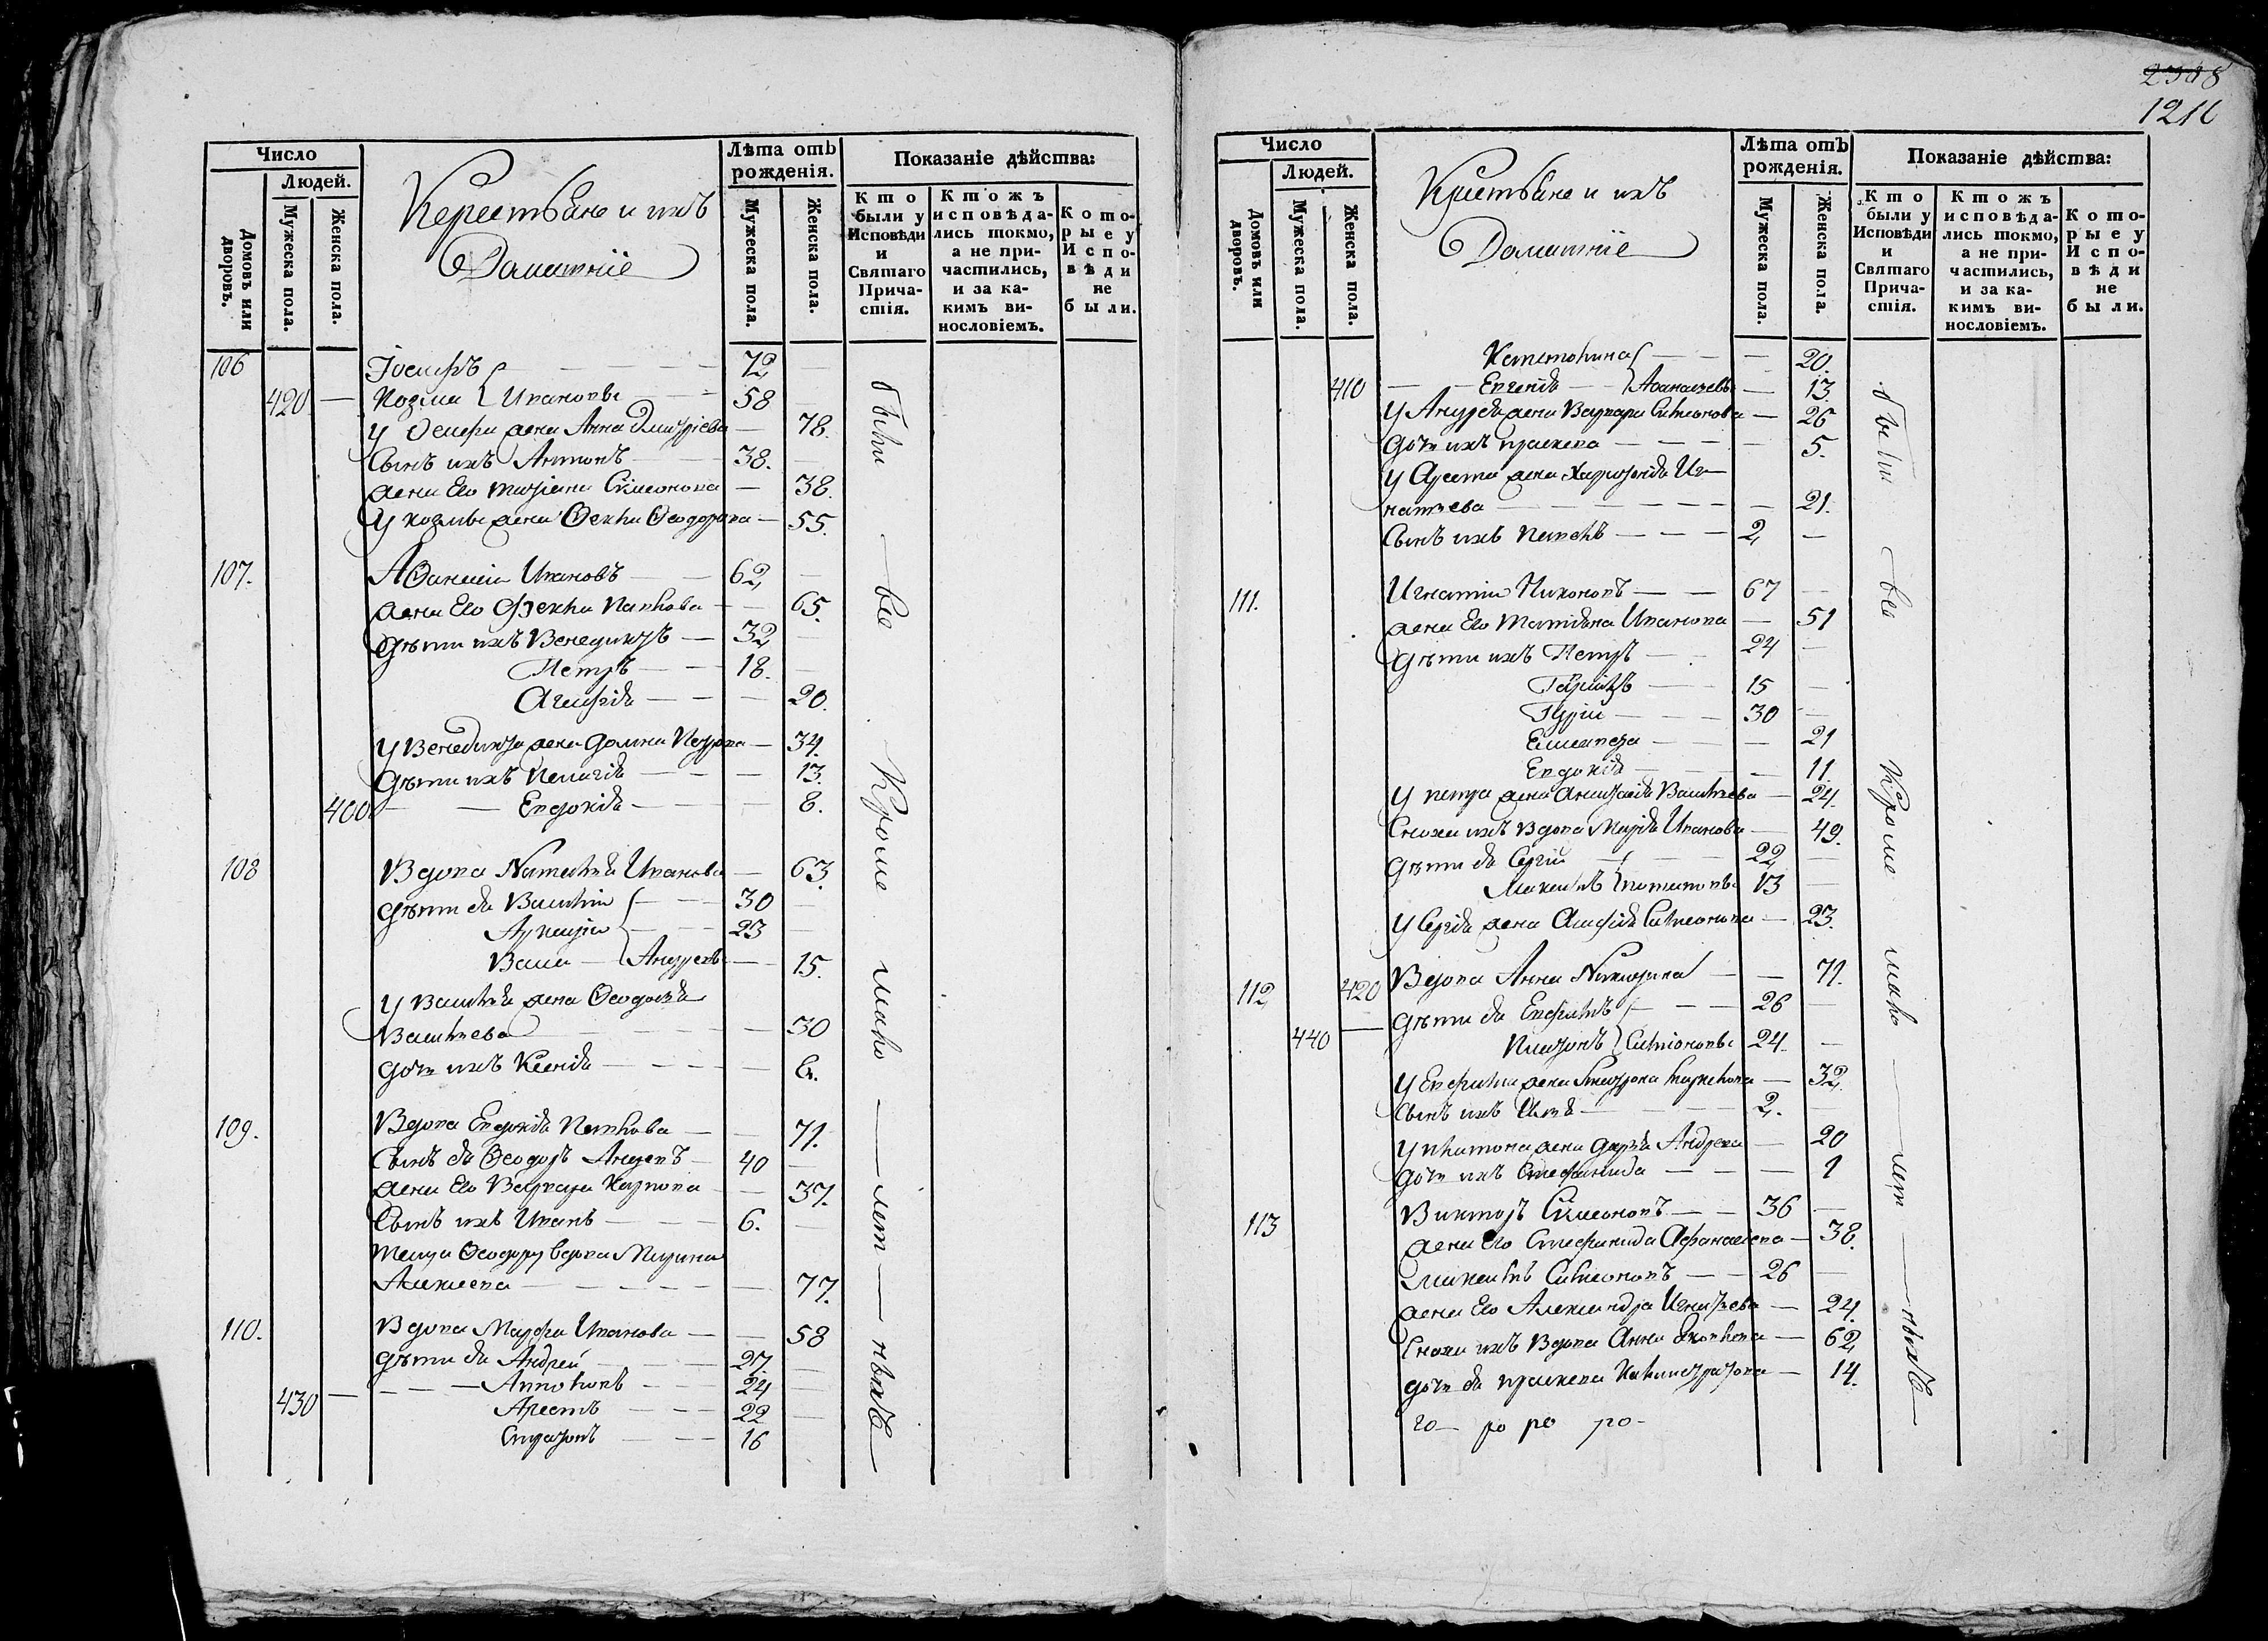 Число
Людей.
Домовъ или дворовъ.
Мужеска пола.
Женска пола.
Керестьяне и ихъ
Домашніе
Лѣта отъ рожденія.
Мужеска пола.
Женска пола.
Показаніе дѣйства:
Кто были у Исповѣди и Святаго Причастія.
Ктожъ исповѣдались токмо, а не причастились, и за какимъ винословіемъ.
Которые у Исповѣди не были.
106 Іосифъ 72
420 Козма Ивановы 58
У Осифа жена Анна Дмитріева 78.
Сынъ ихъ Антонъ 38.
жена Его Татіяна Симеонова 38.
У Козмы жена Ѳекла Ѳеодорова 55.
107. Аѳанасіи Ивановъ 62
жена Его Фекла Павлова 65.
Дѣти ихъ Венедиктъ 32
Петръ 18.
Агафія 20.
У Венедикта жена Домна Петрова 34.
Дѣти ихъ Пелагія 13.
400 Евдокія 8.
108 Вдова Наталья Иванова 63.
Дѣти ея Василіи 30
23
Васса Андреевы 15.
У Василья жена Ѳеодосья
Васильева 30
дочь ихъ Ксенія 6.
109. Вдова Евдокія Павлова 71.
Сынъ ея Ѳеодоръ Андреевъ 40
жена Его Варвара Карпова 37.
Сынъ ихъ Иванъ 6.
Теща Ѳеодору вдова Марина
Алексеева 77.
110. Вдова Марфа Иванова 58
дѣти ея Андрей 27.
430 Апполонъ 24
Арестъ 22
16
были все Кроме мало лет нѣхъ
2308
1211
Число
Людей.
Домовъ или дворовъ.
Мужеска пола.
Женска пола.
Крестьяне и ихъ
Домашніе
Лѣта отъ рожденія.
Мужеска пола.
Женска пола.
Показаніе дѣйства:
Кто были у Исповѣди и Святаго Причастія.
Ктожъ исповѣдались токмо, а не причастились, и за какимъ винословіемъ.
Которые у Исповѣди не были.
20.
410 Евгенія Аѳанасьевы 13.
У Андрея жена Варвара Симеонова 26
дочь ихъ Праскева 5.
У Ареста жена Харитонія Иг-
натьева 21.
Сынъ ихъ Павелъ 2
111. Игнатіи Никоновъ 67
жена Его Татіяна Иванова 51
Дѣти ихъ Петръ 24
15
Гурiи 30
Елисавета 21
Евдокія 11.
У Петра жена Анастасія Васильева 24.
Сноха ихъ Вдова Марія Иванова 49.
Дѣти ея Сергій 22
13
У Сергія жена Симеонова 23.
112 420 Вдова Анна Никитина 71.
дѣти ея 26
440 Платонъ Симіоновы 24.
32.
Сынъ ихъ 2.
У Платона жена Дарья Андреева 20
дочь ихъ Стефанида 1
113 Викторъ Симеоновъ 36
жена Его Стефанида Афанасіева 38.
Симеоновъ 26
жена Его Александра Игнатьева 24.
Сноха ихъ Вдова Анна 62
дочь ея Праскева 14.
были все Кроме мало лет нѣхъ